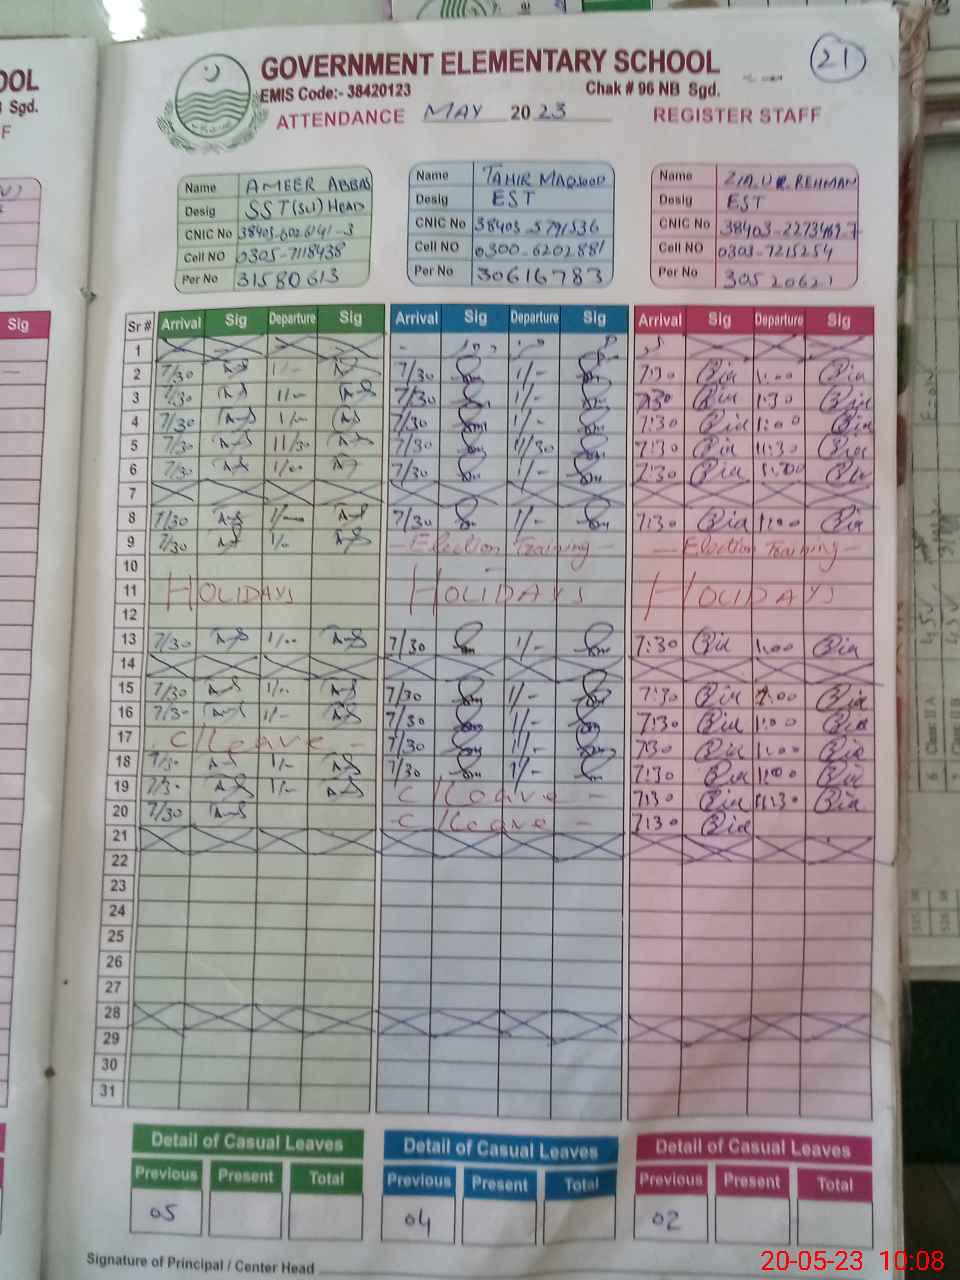 21
GOVERNMENT ELEMENTARY SCHOOL
EMIS Code:- 38420123 Chak # 96 NB Sgd.
ATTENDANCE MAY 2023 REGISTER STAFF
OOL
Sgd.
F
Sig
Name AMEER ABBAS
Desig SST(SU) HEAD
CNIC No
Cell NO 0305-7118438
Per No 31580613
Name TAHIR MAQSOOD
Desig EST
CNIC No 38403-5791536
Cell NO 0300-6202881
Per No 30616783
Name ZIA.U.R.REHMAN
Desig EST
CNIC No 38403-2273469-7
Cell NO 0303-7215254
Per No 30520621
Sr # Arrival Sig Departure Sig Arrival Sig Departure Sig Arrival Sig Departure Sig
1
2 7/30 1/- 7/30 1/- 7:30 1:00
3 7/30 1/- 7/30 1/- 7:30 1:30
4 7/30 1/- 7/30 1/- 7:30 1:00
5 7/30 11/30 7/30 11/30 7:30 11:30
6 7/30 1/00 7/30 1/- 7:30
7
8 7/30 1/- 7/30 1/- 7:30 1:00
9 7/30 1/- - Election Training - - Election Training -
10
11 HOLIDAYS HOLIDAYS HOLIDAYS
12
13 7/30 1/00 7/30 1/- 7:30 1:00
14
15 7/30 1/- 7/30 1/- 7:30 1:00
16 7/30 1/- 7/30 1/- 7:30 1:00
17 C/Leave - 7/30 1/- 7:30 1:00
18 7/30 1/- 7/30 1/- 7:30 1:00
19 7/30 1/- C/Leave - 7:30 11:30
20 7/30 C/Leave - 7:30
21
22
23
24
25
26
27
28
29
30
31
Detail of Casual Leaves Detail of Casual Leaves Detail of Casual Leaves
Previous Present Total Previous Present Total Previous Present Total
05 04 02
Signature of Principal / Center Head
20-05-23 10:08